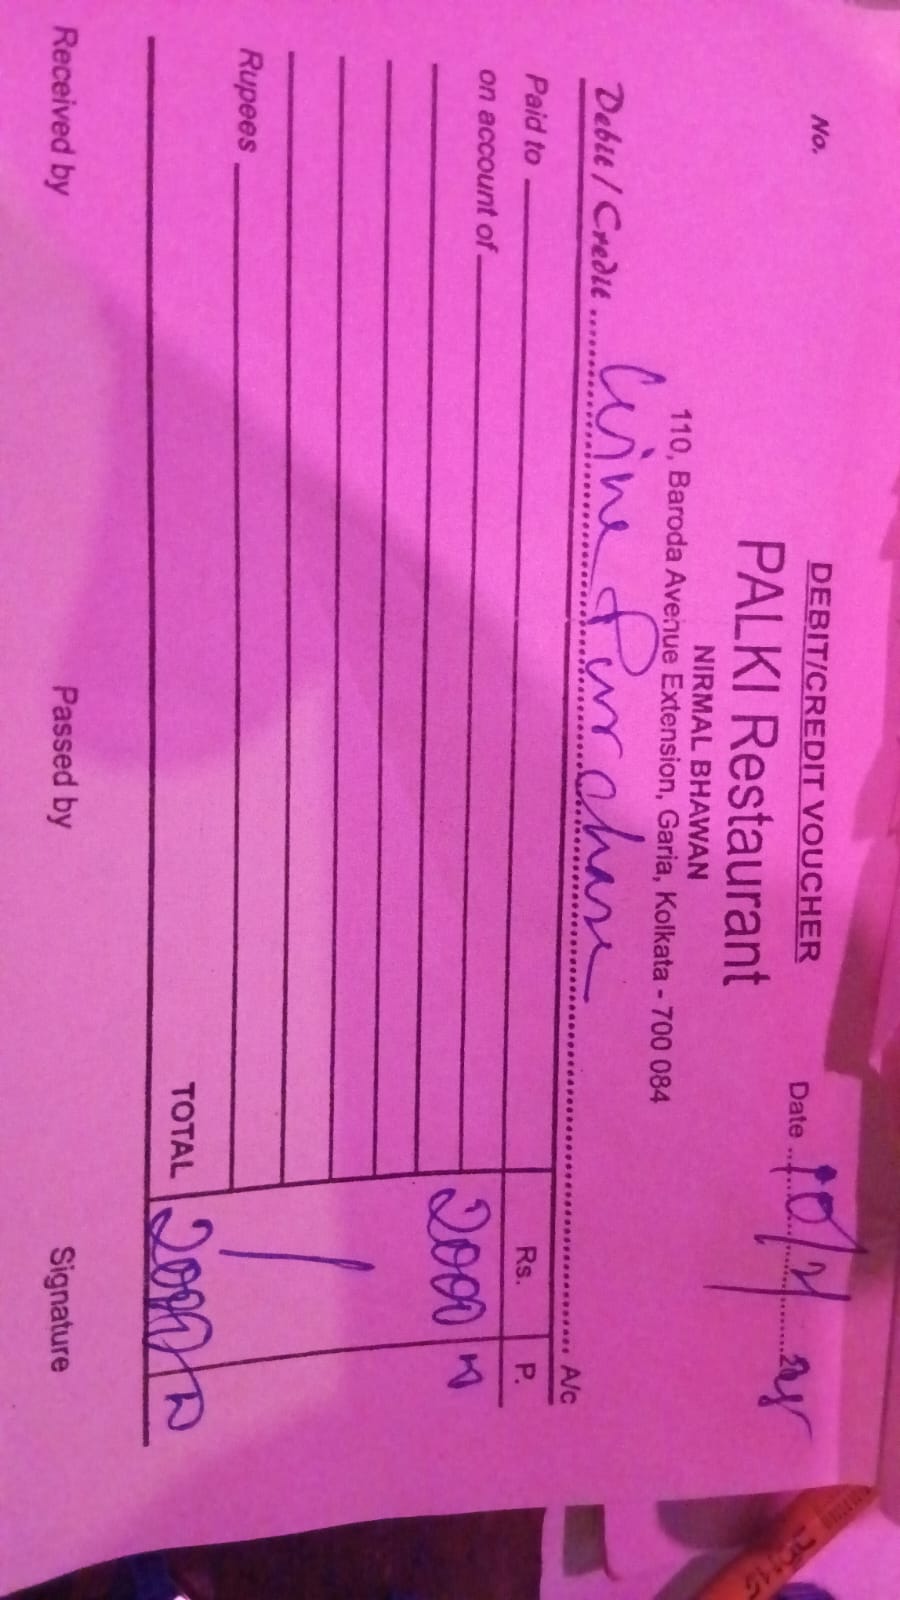 DEBIT/CREDIT VOUCHER
No. Date 10/2/25
PALKI Restaurant
NIRMAL BHAWAN
110, Baroda Avenue Extension, Garia, Kolkata - 700 084
Debit / Credit Wine Purchase A/c
Paid to Rs. P.
on account of 2000
Rupees
TOTAL 2000
Received by Passed by Signature